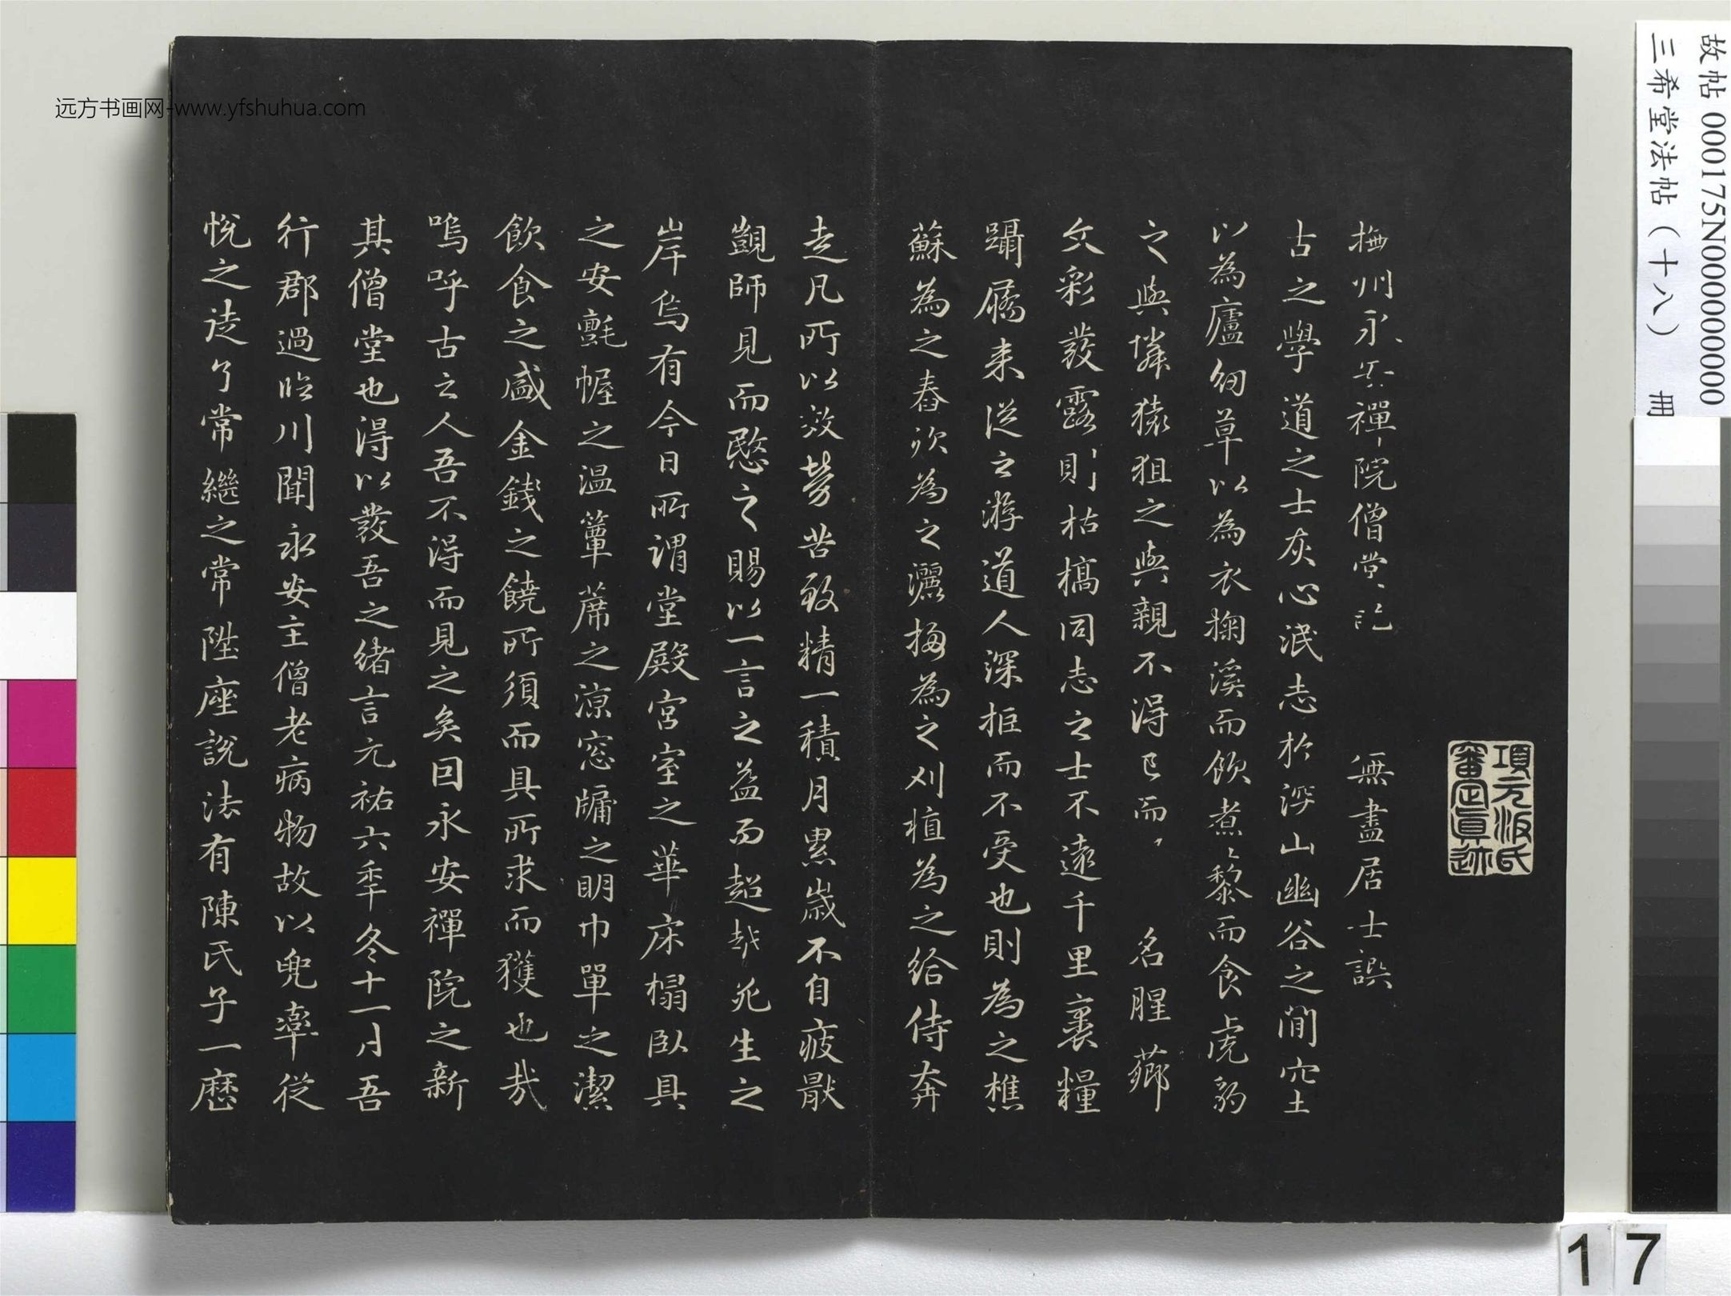 故帖 000175N000000000
三希堂法帖（十八） 冊
远方书画网-www.yfshuhua.com
項元汴氏審定真迹
撫州永安禪院僧堂記 無盡居士譔
古之學道之士灰心泯志於深山幽谷之間穴土
以為廬紉草以為衣掬溪而飲煮黎而食虎豹
之與鄰猿狙之與親不得已而名腥薌
文彩發露則枯槁同志之士不遠千里裹糧
躡屩来從之游道人深拒而不受也則為之樵
蘇為之舂炊為之灑掃為之刈植為之給侍奔
走凡所以效勞苦致精一積月累歲不自疲厭
覬師見而愍之賜以一言之益而超越死生之
岸烏有今日所謂堂殿宮室之華床榻臥具
之安氈幄之温簟席之凉窓牖之明巾單之潔
飲食之盛金錢之饒所須而具所求而獲也哉
嗚呼古之人吾不得而見之矣因永安禪院之新
其僧堂也得以發吾之緒言元祐六季冬十一月吾
行郡過臨川聞永安主僧老病物故以兜率從
悅之徒了常繼之常陞座說法有陳氏子一歷
17